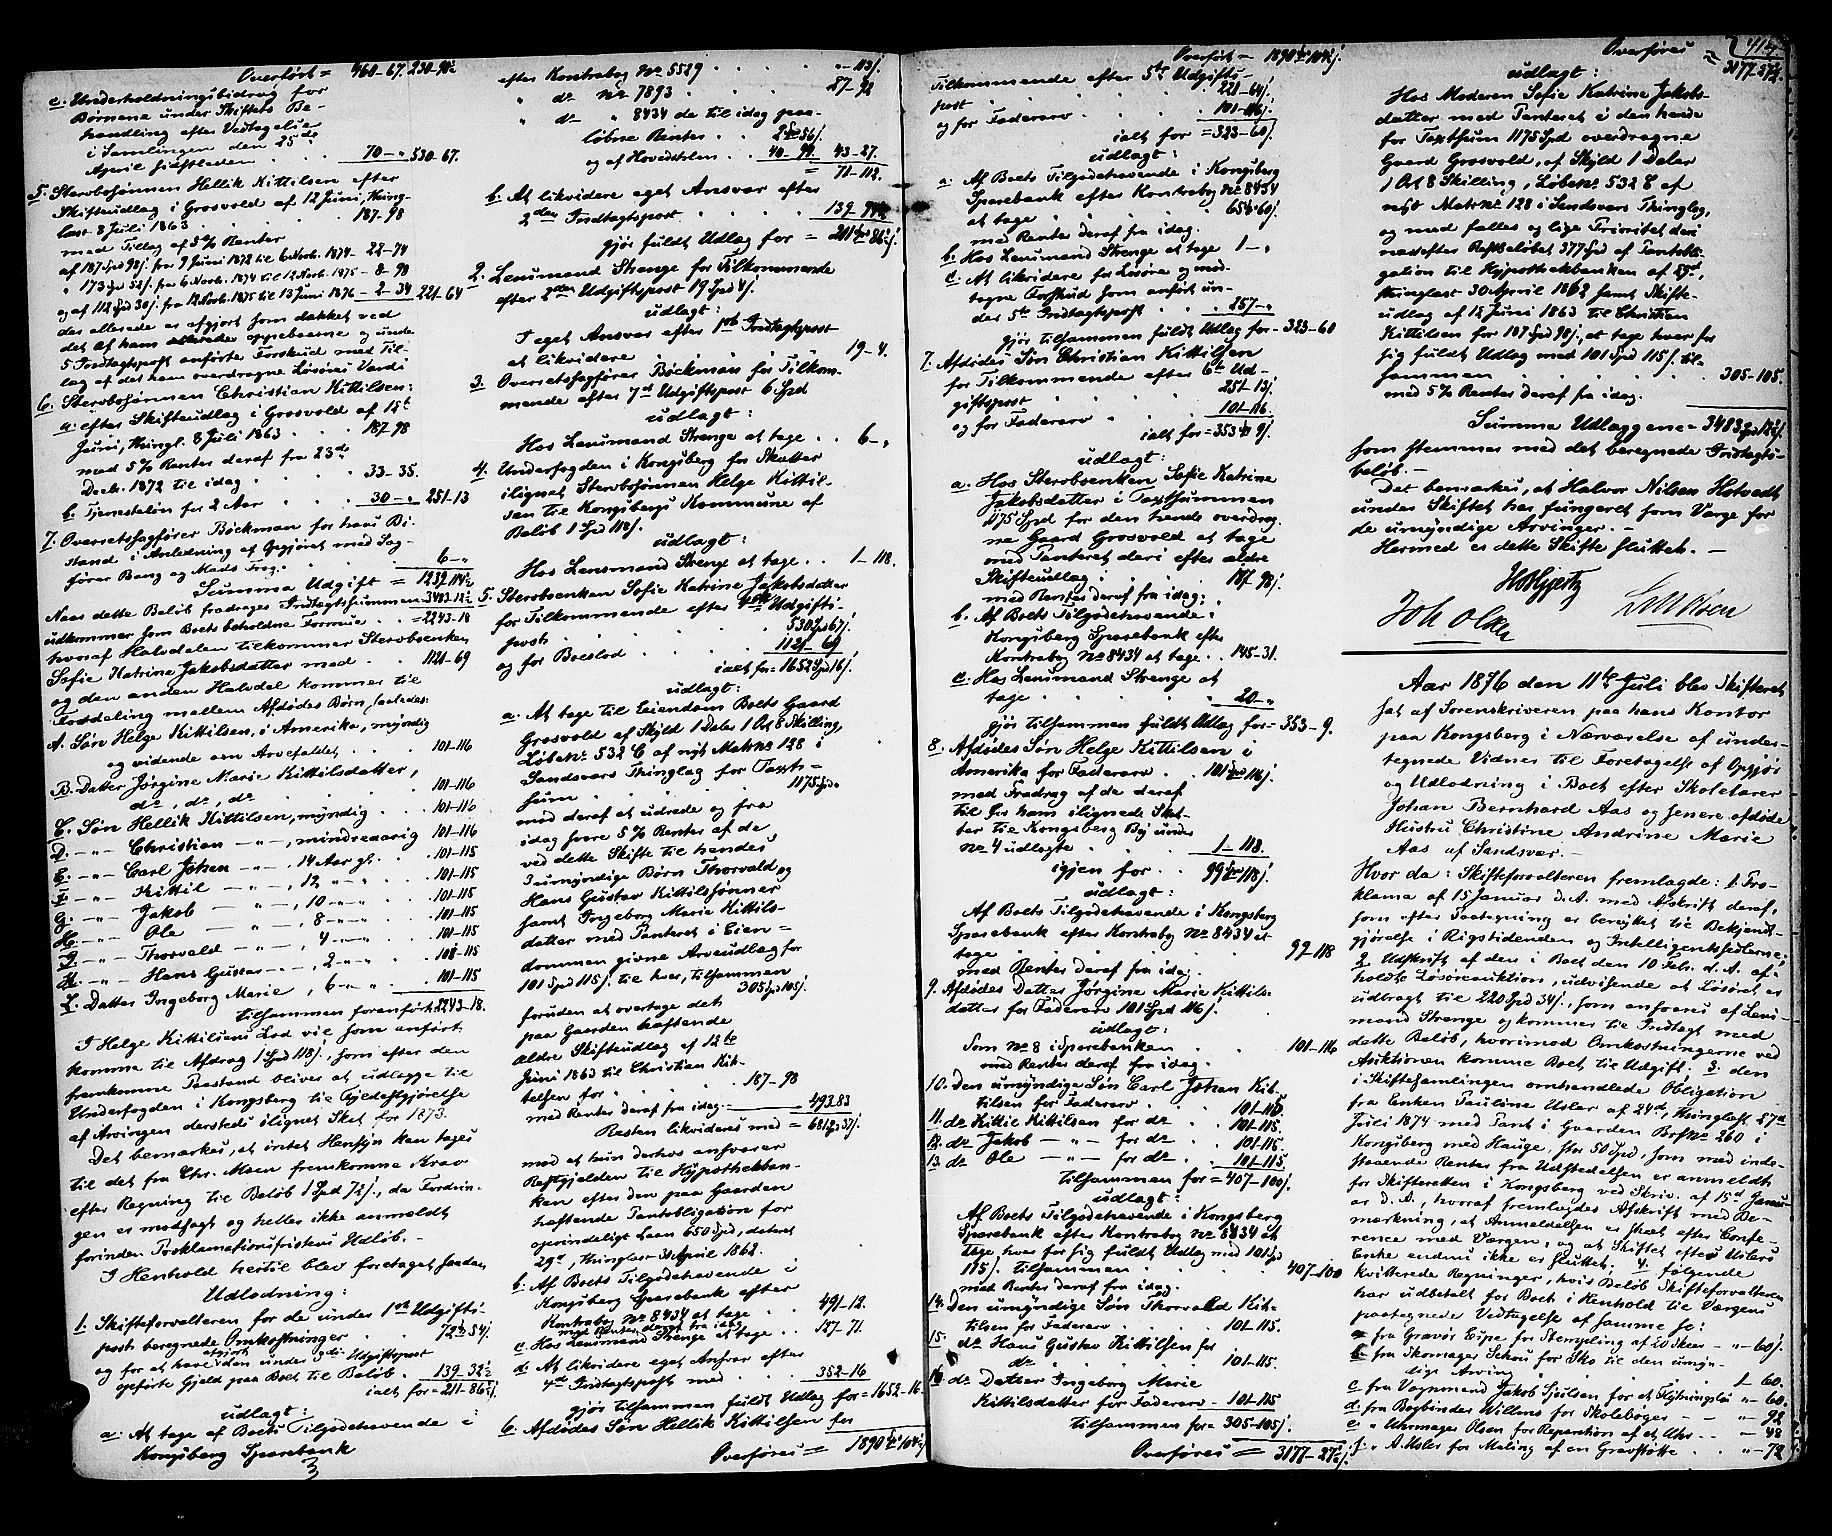 Overført = 460-67. 230-90½
c. Underholdningsbidrag for
Børnene under Skiftets Be-
handling efter Vedtagelse
i Samlingen den 25de
April sidstleden . . . 70-" 530-67.
5. Stervbosønnen Hellik Kittilsen efter
Skifteudlag i Grosvold af 12 Juni, thing-
læst 8 Juli 1863 . . 187-98
med Tillæg af 5% Renter
af 187 Spd 98 s. fra 9 Juni 1872 til 6 Novb. 1874 - 22-74
" 173 Spd 52 s. fra 6 Novb. 1874 til 12 Novb. 1875 - 8-98
og af 112 Spd 30 s. fra 12 Novb. 1875 til 13 Juni 1876 - 2-34 221-64
der allerede er afgjort som dækket ved
det af ham allerede oppebaarne og under
5 Indtægtspost anførte Forskud med Til-
læg af det ham overdragne Løsøres Værdi
6. Stervbosønnen Christian Kittilsen:
a. efter Skifteudlag i Grosvold af 12te
Juni, thingl. 8 Juli 1863 . . 187-98
med 5% Renter deraf fra 23de
Decb. 1872 til idag . . . 33-35.
b. Tjenesteløn for 2 Aar . . 30-" 251-13
7. Overretssagfører Bøckman for hans Bi-
stand i Anledning af Opgjøret med Sag-
fører Bang og Mads Frog. . . 6-"
Summa Udgift = 1239-114½
Naar dette Beløb fradrages Indtægtssummen 3483-12½
udkommer som Boets beholdne Formue . . = 2243-18
hvoraf Halvdelen tilkommer Stervboenken
Sofie Katrine Jakobsdatter med . . 1121-69
og den anden Halvdel kommer til
Fordeling mellem Afdødes Børn, saaledes:
A. Søn Helge Kittilsen, i Amerika, myndig
og vidende om Arvefaldet . . . 101-116
B. Datter Jørgine Marie Kittilsdatter,
do, do, do . . . 101-116
C. Søn Hellik Kittilsen, myndig . . 101-116
D. -"- Christian -"-, mindreaarig 101-116
E. -"- Carl Johan -"-, 14 Aar gl. . 101-115
F. -"- Kittil -"-, 12 -"- . 101-115
G. -"- Jakob -"-, 10 -"- . 101-115
H. -"- Ole -"-, 8 -"- . 101-115
I. -"- Thorvald -"-, 4 -"- . 101-115
K. -"- Hans Gustav -"-, 2 -"- . 101-115
L. Datter Ingeborg Marie, 6 -"- . 101-115
tilsammen foranført 2243-18.
I Helge Kittilsens Lod vil som anført
komme til Afdrag 1 Spd 118 s., som efter den
fremkomne Paastand bliver at udlægge til
Underfogden i Kongsberg til Fyldestgjørelse
af Arvingen dersteds ilignet Skat for 1873.
Det bemærkes, at intet Hensyn kan tages
til det fra Chr. Moen fremkomne Krav
efter Regning til Beløb 1 Spd 72 s., da Fordrin-
gen er modsagt og heller ikke anmeldt
forinden Proklamafristens Udløb. -
I Henhold hertil blev foretaget saadan
Udlodning:
1. Skifteforvalteren for de under 1ste Udgifts-
post beregnede Omkostninger . . 72 Spd 54 s.
og for at have afgjort den under 3die Udgiftspost
opførte Gjeld paa Boet til Beløb . 139-32½
ialt for = 211-86½ s.
udlagt:
a. At tage af Boets Tilgodehavende i
Kongsberg Sparebank
3
efter Kontrabog No 5529 . . . . "-113 s.
" do No 7893 . . . . 27-92
" do " 8434 de til idag paa-
løbne Renter . . 2 Spd 56 s.
og af Hovedstolen . . 40-91 = 43-27.
= 71-112.
b. At likvidere eget Ansvar efter
2den Indtægtspost . . . 139-94½
gjør fuldt Udlæg for = 211 Spd 86½ s.
2. Lensmand Strenge for Tilkommende
efter 2den Udgiftspost 19 Spd 4 s.
udlagt:
I eget Ansvar efter 1ste Indtægtspost
at likvidere . . . . 19-4.
3. Overretssagfører Bøckman for Tilkom-
mende efter 7de Udgiftspost 6 Spd
udlagt:
Hos Lensmand Strenge at tage . . 6-"
4. Underfogden i Kongsberg for Skatter
ilignet Stervbosønnen Helge Kittil-
sen til Kongsbergs Kommune af
Beløb 1 Spd 118 s.
udlagt:
Hos Lensmand Strenge at tage . . 1-118.
5. Stervboenken Sofie Katrine Jakobsdatter
for Tilkommende efter 4de Udgifts-
post . . . . 530 Spd 67 s.
og for Boeslod . . . 1121-69
ialt for = 1652 Spd 16 s.
udlagt:
a. At tage til Eiendom Boets Gaard
Grosvold af Skyld 1 Daler 1 Ort 8 Skilling,
Løbe No 532 C af nyt Matr No 128 i
Sandsværs Thinglag for Taxt-
sum . . . . 1175 Spd.
mod deraf at udrede og fra
idag svare 5% Renter af de
ved dette Skifte til hendes
3 umyndige Børn Thorvald og
Hans Gustav Kittilsønner
samt Ingeborg Marie Kittils-
datter med Panteret i Eien-
dommen givne Arveudlæg for
101 Spd 115 s. til hver, tilsammen
305 Spd 105 s.
foruden at overtage det
paa Gaarden hæftende
ældre Skifteudlæg af 12te
Juni 1863 til Christian Kit-
telsen for . . . 187-98
med Renter deraf fra idag - = 493.83
Resten likvideres med = 681 Spd 37 s.
mod at hun derhos ansvarer
Restgjelden til Hypothekban-
ken efter den paa Gaarden
hæftende Pantobligation for
oprindeligt Laan 650 Spd, dateret
29de, thinglæst 30 April 1862.
b. Af Boets Tilgodehavende i
Kongsberg Sparebank efter
Kontrabog No 8434 at tage . . 491-12.
med Renter deraf fra idag
c. Hos Lensmand Strenge at tage . . 127-71.
d. At likvidere eget Ansvar efter
4de Indtægtspost med . . 352-16
gjør tilsammen fuldt Udlæg for = 1652-16
6. Afdødes Søn Hellik Kittilsen for
Overføres = 1890 Spd 104½ s.
Overført = 1890 Spd 104½ s.
Tilkommende efter 5te Udgifts-
post . . . 221-64 s.
og for Faderarv . . . 101-116 s.
ialt for = 323-60 s.
udlagt:
a. Af Boets Tilgodehavende i Kongsberg
Sparebank efter Kontrabog No 8434
at tage . . . 65 Spd 60 s.
med Renter deraf fra idag.
b. Hos Lensmand Strenge at tage 1-"
c. At likvidere for Løsøre og mod-
tagne Forskud som anført un-
der 5te Indtægtspost . . 257-"
gjør tilsammen fuldt Udlæg for - 323-60
7. Afdødes Søn Christian Kittilsen
for Tilkommende efter 6te Ud-
giftspost . . . 251-13 s.
og for Faderarv . . . 101-116
ialt for = 353 Spd 9 s.
udlagt:
a. Hos Stervboenken Sofie Katrine
Jakobsdatter i Taxtsummen
1175 Spd for den hende overdrag-
ne Gaard Grosvold at tage
med Panteret deri efter ældre
Skifteudlæg . . . 187-98 s.
med Renter deraf fra idag;
b. Af Boets Tilgodehavende i
Kongsberg Sparebank efter
Kontrabog No 8434 at tage . . 145-31.
c. Hos Lensmand Strenge at
tage . . . . 20-"
gjør tilsammen fuldt Udlæg for = 353-9.
8. Afdødes Søn Helge Kittilsen i
Amerika for Faderarv . . 101 Spd 116 s.
med Fradrag af de deraf
til for ham ilignede Skat-
ter til Kongsberg By under
No 4 udlagte . . . 1-118.
igjen for . . 99 Spd 118 s.
udlagt:
Af Boets Tilgodehavende i Kongsberg
Sparebank efter Kontrabog No 8434 at
tage . . . . 99-118
med Renter deraf fra idag.
9. Afdødes Datter Jørgine Marie Kittils-
datter for Faderarv 101 Spd 116 s.
udlagt:
Som No 8 i Sparebanken . . 101-116
med Renter deraf fra idag.
10. Den umyndige Søn Carl Johan Kit-
tilsen for Faderarv . . 101-115.
11. do Kittil Kittilsen for do . . 101-115.
12. do Jakob -"- for do . . 101-115
13. do Ole -"- for do . . 101-115
tilsammen for = 407-100 s.
udlagt:
Af Boets Tilgodehavende i Kongsberg
Sparebank efter Kontrabog No 8434 at
tage, hver for sig fuldt Udlæg med 101 Spd
115 s. tilsammen . . . 407-100
med Renter deraf fra idag.
14. Den umyndige Søn Thorvald Kit-
tilsen for Faderarv . . 101-115.
15. do Hans Gustav Kittilsen for
do . . . 101-115.
16. do Datter Ingeborg Marie
Kittilsdatter for Faderarv - 101-115
tilsammen for = 305-105 s.
Overføres = 3177-27½ s.
414
Overføres = 3177-27½
udlagt:
Hos Moderen Sofie Katrine Jakobs-
datter med Panteret i den hende
for Taxtsum 1175 Spd overdragne
Gaard Grosvold, af Skyld 1 Daler
1 Ort 8 Skilling, Løbe No 532 C af
nyt Matr No 128 i Sandsværs Thinglag,
og med fælles og lige Prioritet deri
næstefter Restbeløbet 377 Spd af Pantobli-
gation til Hypothekbanken af 29de,
thinglæst 30 April 1862 samt Skifte-
udlæg af 12 Juni 1863 til Christian
Kittilsen for 187 Spd 98 s., at tage hver for
sig fuldt Udlæg med 101 Spd 115 s. til-
sammen . . . . 305-105.
med 5% Renter deraf fra idag.
Summa Udlæggene = 3483 Spd 12½ s.
som stemmer med det beregnede Indtægts-
beløb. -
Det bemærkes, at Halvor Nilsen Hotvedt
under Skiftet har fungeret som Værge for
de umyndige Arvinger. -
Hermed er dette Skifte sluttet. -
Joh Olsen
Aar 1876 den 11te Juli blev Skifteret
sat af Sorenskriveren paa hans Kontor
paa Kongsberg i Nærværelse af under-
tegnede Vidner til Foretagelse af Opgjør
og Udlodning i Boet efter Skolelærer
Johan Bernhard Aas og senere afdøde
Hustru Christine Andrine Marie
Aas af Sandsvær. -
Hvor da: Skifteforvalteren fremlagde: 1. Pro-
klama af 15 Januar d.A. med Afskrift deraf,
som efter Paategning er bevirket til Bekjendt-
gjørelse i Rigstidenden og Intelligentssedlerne;
2. Udskrift af den i Boet den 10 Febr. d. A. af-
holdte Løsøreauktion, udvisende at Løsøret er
udbragt til 220 Spd 34 s., som ansvares af Lens-
mand Strenge og kommer til Indtægt med
dette Beløb, hvorimod Omkostningerne ved
Auktionen komme Boet til Udgift. 3. den
i Skiftesamlingen omhandlede Obligation
fra Enken Pauline Usler af 24de, thinglæst 27de
Juli 1874 med Pant i Gaarden Brf No 260 i
Kongsberg med Hauge, stor 50 Spd, som med inde-
staaende Renter fra Udstedelsen er anmeldt
for Skifteretten i Kongsberg ved Skriv. af 15de Janu-
ar d. A., hvoraf fremlagdes Afskrift med Be-
mærkning, at Anmeldelsen er skeet efter Confe-
rence med Værgen, og at Skiftet efter Uslers
Enke endnu ikke er sluttet. 4. følgende
kvitterede Regninger, hvis Beløb Skifteforvalteren
har udbetalt for Boet i Henhold til Værgens
paategnede Vedtagelse af samme fo:
a fra Gravør Eipe for Stempling af 20 Skeer - "-60 s.
b fra Skomager Schou for Sko til den umyn-
dige Arving . . . 1-60.
c fra Vognmand Jakob Sjulsen for et Flytningslæs "-60.
d. fra Bogbinder Willens for Skolebøger - - "-92
e " Uhrmager Olsen for Reparation af et Uhr - - "-48
f. " A. Usler for Maling af en Gravstøtte . . "-72